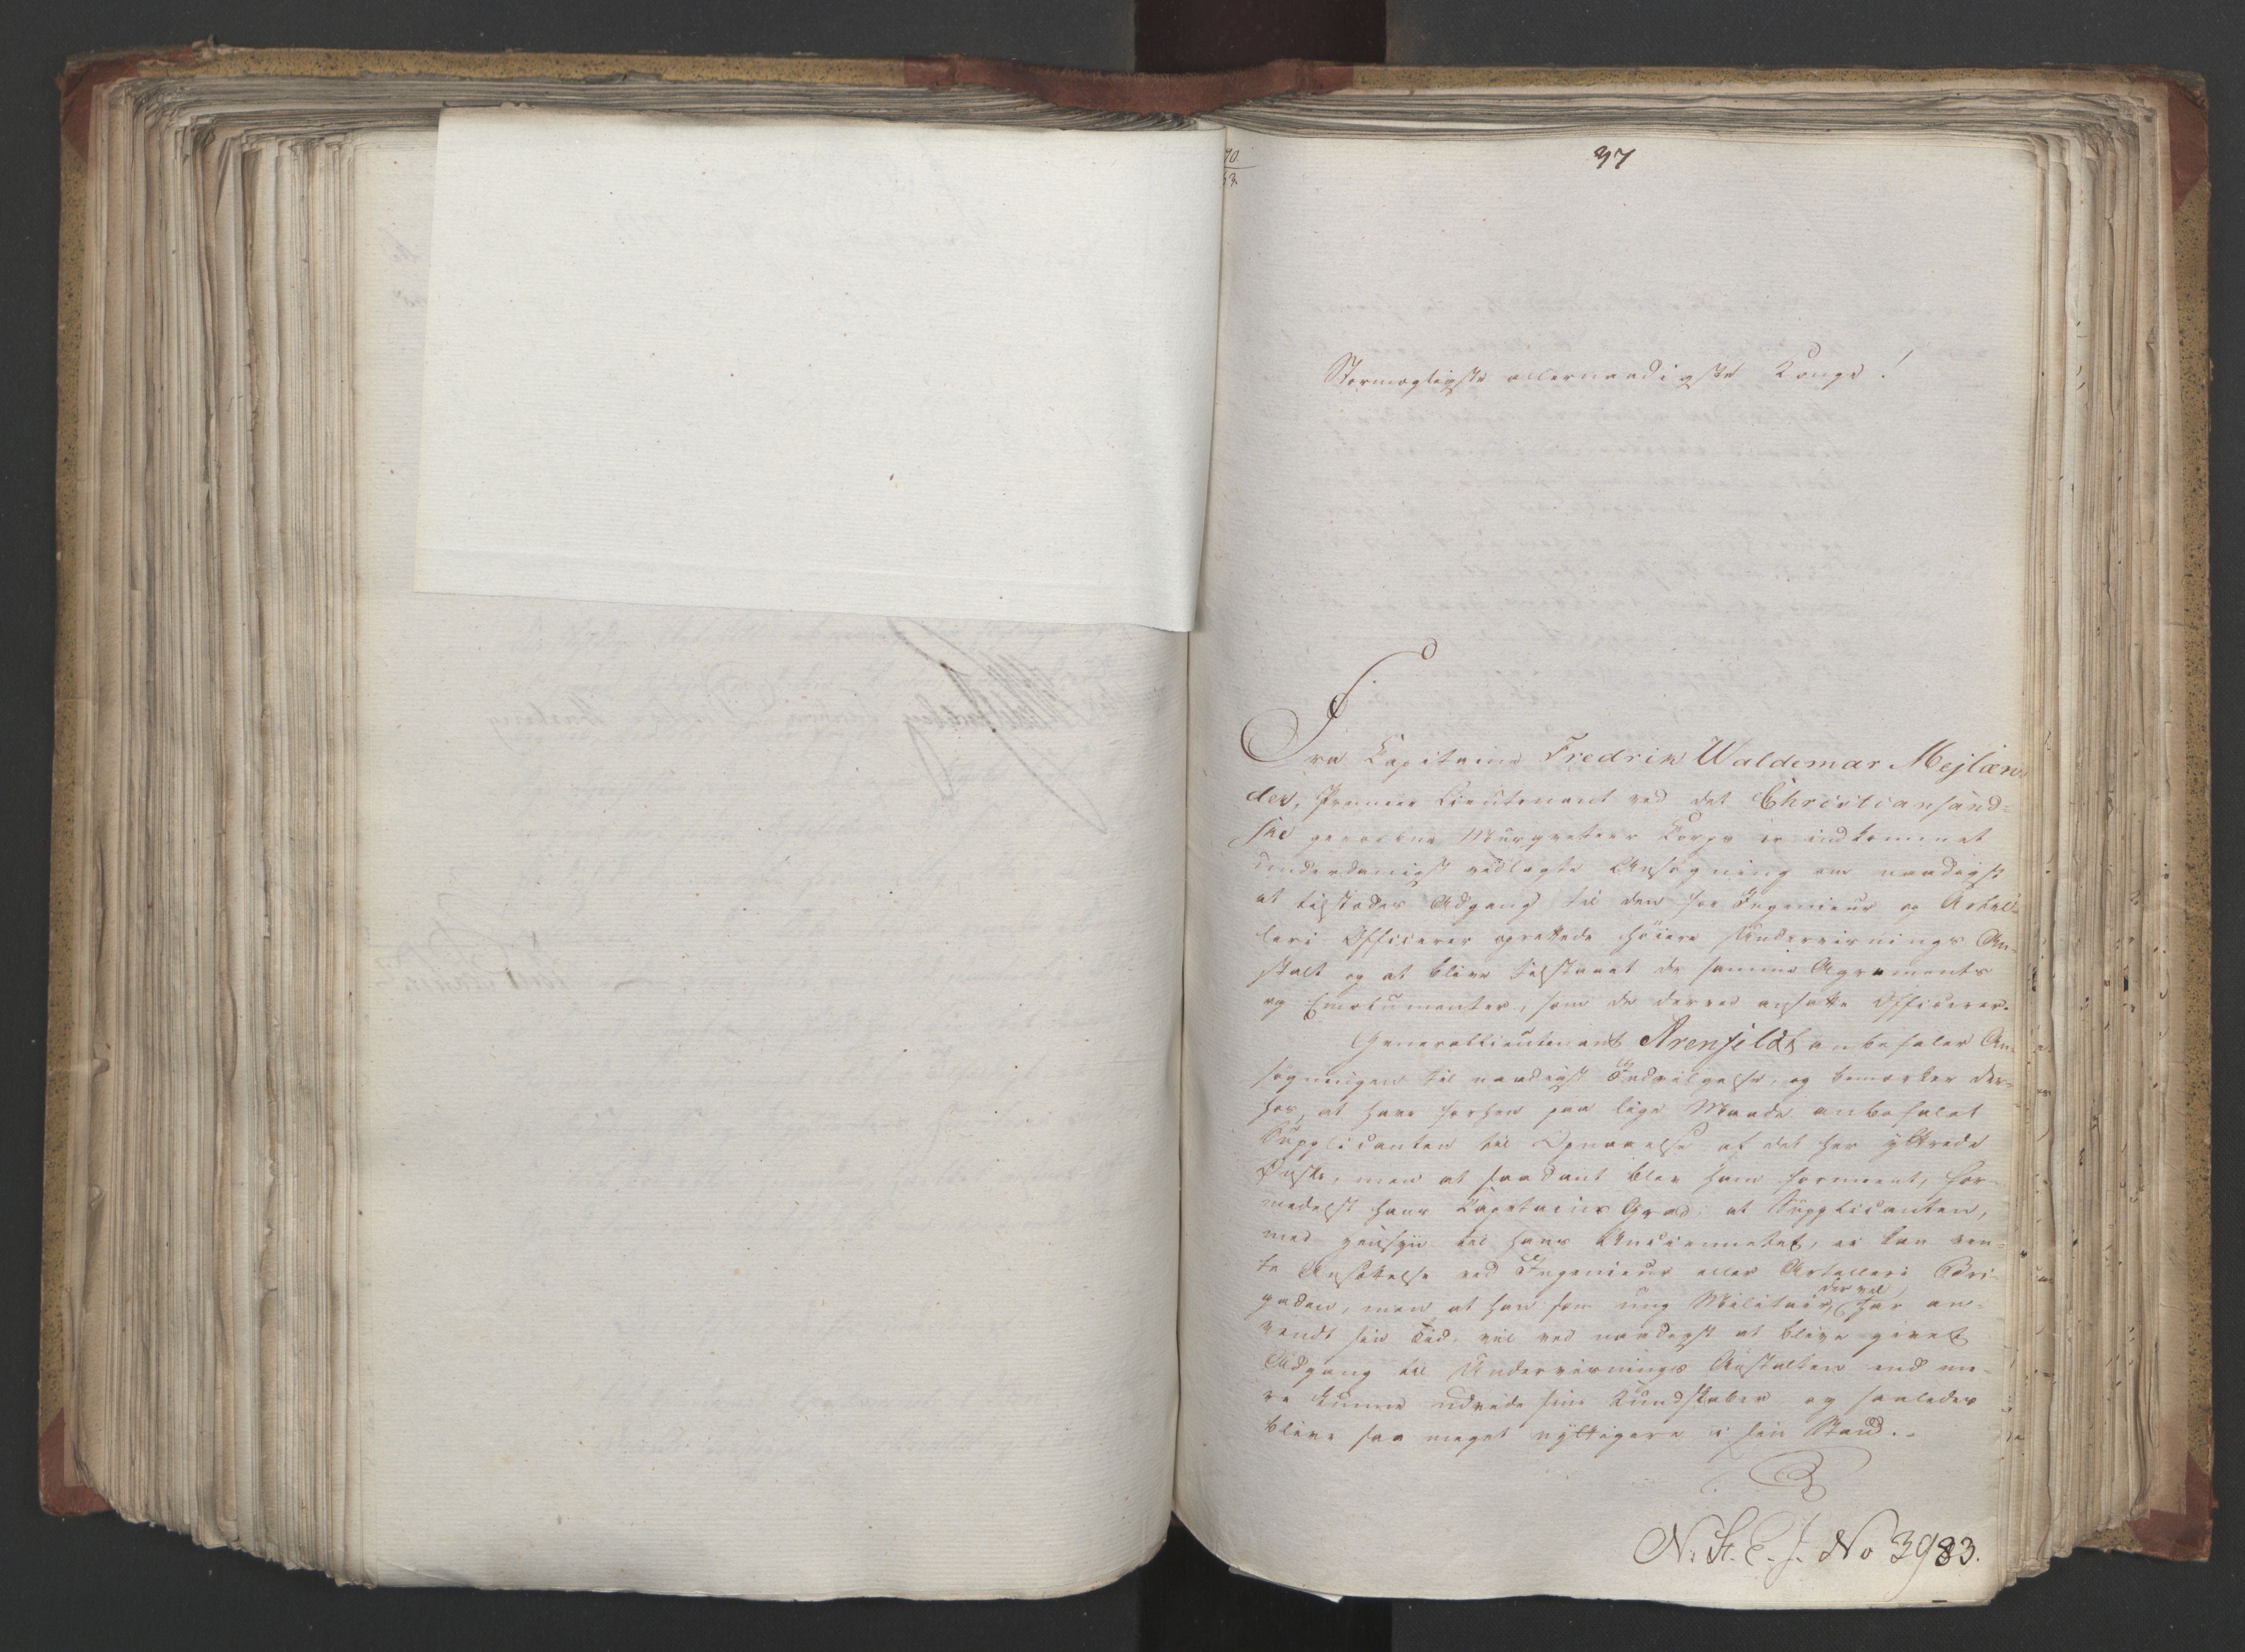 37
Stormægtigste allernaadigste Konge!
Fra Capitaine Fredrik Waldemar Mejlæn
der, Premier Lieutenant ved det Christiansand-
ske gevorbne Musqueteer Corps er indkommet
underdanigst vedlagte Ansøgning om naadigst
at tilstædes Adgang til den for Ingenieur og Artil-
leri Officerer oprettede høiere Underviisnings An-
stalt og at blive tilstaaet de samme Agrements
og Emolumenter, som de derved ansatte Officerer.
Generallieutenant Arenfeldt anbefaler An-
søgningen til naadigst Indvilgelse, og bemærker der-
hos, at have forhen paa lige Maade anbefalet
Supplicanten til Opnaaelse af det her yttrede
Ønske, men at saadant blev ham formeent, for-
medelst hans Capitains Grad; at Supplicanten,
med Hensyn til hans Anciennetet, ei kan ven-
te Ansættelse ved Ingenieur eller Artilleri Bri-
gaden, men at han som ung Militair, der vel har an-
vendt sin Tid, vil ved naadigst at blive givet
Adgang til Underviisnings Anstalten end me-
re kunne udvide sine Kundskaber og saaledes
blive saa meget nyttigere i sin Stand.
No 3983.